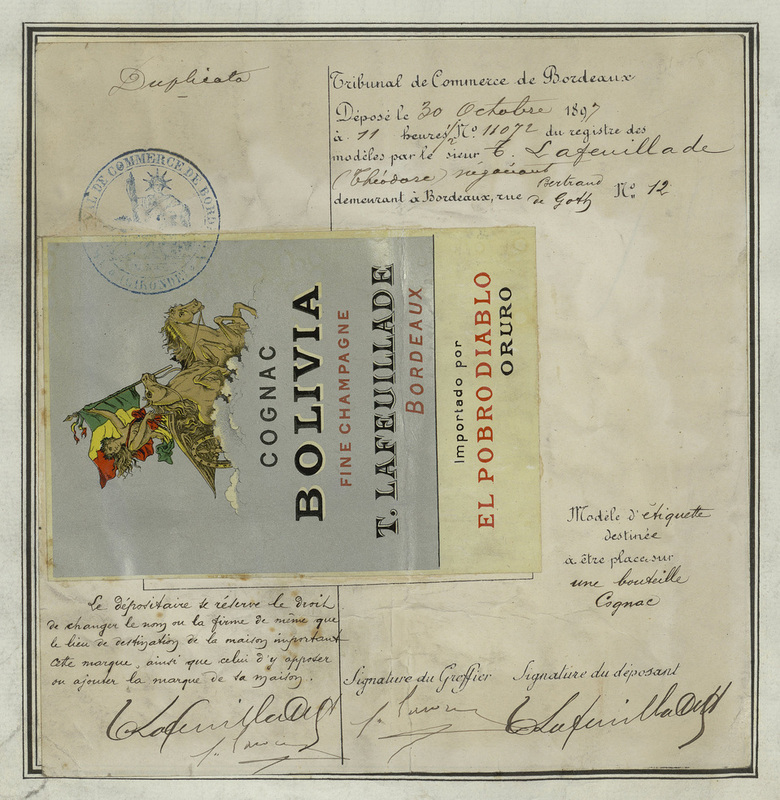 Duplicata
Tribunal de Commerce de Bordeaux
Déposé le 30 Octobre 1897
à 11 heures 1/2 No. 11072 du registre des
modèles par le sieur T. Lafeuillade
(Théodore) négociant
demeurant à Bordeaux, rue Bertrand de Goth No. 12
DE COMMERCE DE BORD
GIRONDE
COGNAC
BOLIVIA
FINE CHAMPAGNE
T. LAFEUILLADE
BORDEAUX
Importado por
EL POBRO DIABLO
ORURO
Modèle d'étiquette
destinée
à être placée sur
une bouteille
Cognac
Le dépositaire se réserve le droit
de changer le nom ou la firme de même que
le lieu de destination de la maison important
cette marque, ainsi que celui d'y apposer
ou ajouter la marque de sa maison.
Signature du Greffier
Signature du déposant
T Lafeuillade
T Lafeuillade